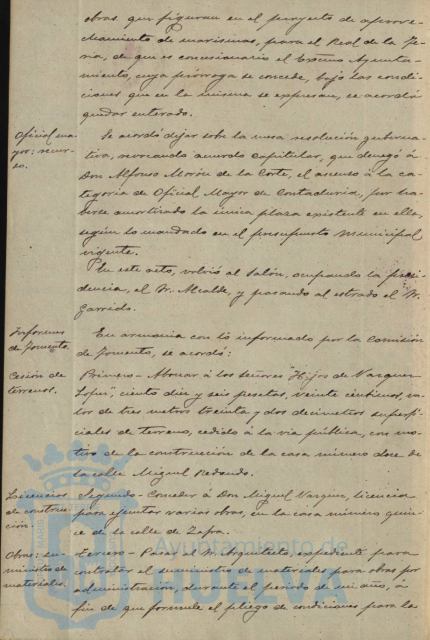 obras que figuran en el proyecto de aprove-
chamiento de marismas, para el Real de la Fe-
ria, de que es concesionario el Excmo Ayunta-
miento, cuya prórroga se concede, bajo las condi-
ciones que en la misma se expresan, se acordó
quedar enterado.
Oficial ma-
yor: recur-
so.
Se acordó dejar sobre la mesa resolución guberna-
tiva, revocando acuerdo capitular, que denegó á
Don Alfonso Morón de la Corte, el ascenso á la ca-
tegoría de Oficial Mayor de Contaduría, por ha-
berse amortizado la única plaza existente en ella,
según lo mandado en el presupuesto Municipal
vigente.
En este acto, volvió al Salón, ocupando la presi-
dencia, el Sr. Alcalde, y pasando al estrado el Sr.
Garrido.
Informes
de Fomento.
En armonia con lo informado por la Comisión
de Fomento, se acordó:
Cesión de
terrenos.
Primero - Abonar á los señores "Hijos de Vazquez
Lopez", ciento diez y seis pesetas, veinte céntimos, va-
lor de tres metros treinta y dos decimetros superfi-
ciales de terreno, cedido á la via pública, con mo-
tivo de la construcción de la casa número doce de
la calle Miguel Redondo.
Licencias
de construc-
ción.
Segundo - Conceder á Don Miguel Vazquez, licencia
para ejecutar varias obras, en la casa número quin-
ce de la calle de Zafra.
Obras: su-
ministro de
materiales.
Tercero - Pasar al Sr. Arquitecto, expediente para
contratar el suministro de materiales para obras por
administración, durante el periodo de un año, á
fin de que formule el pliego de condiciones para la
Ayuntamiento de
HUELVA